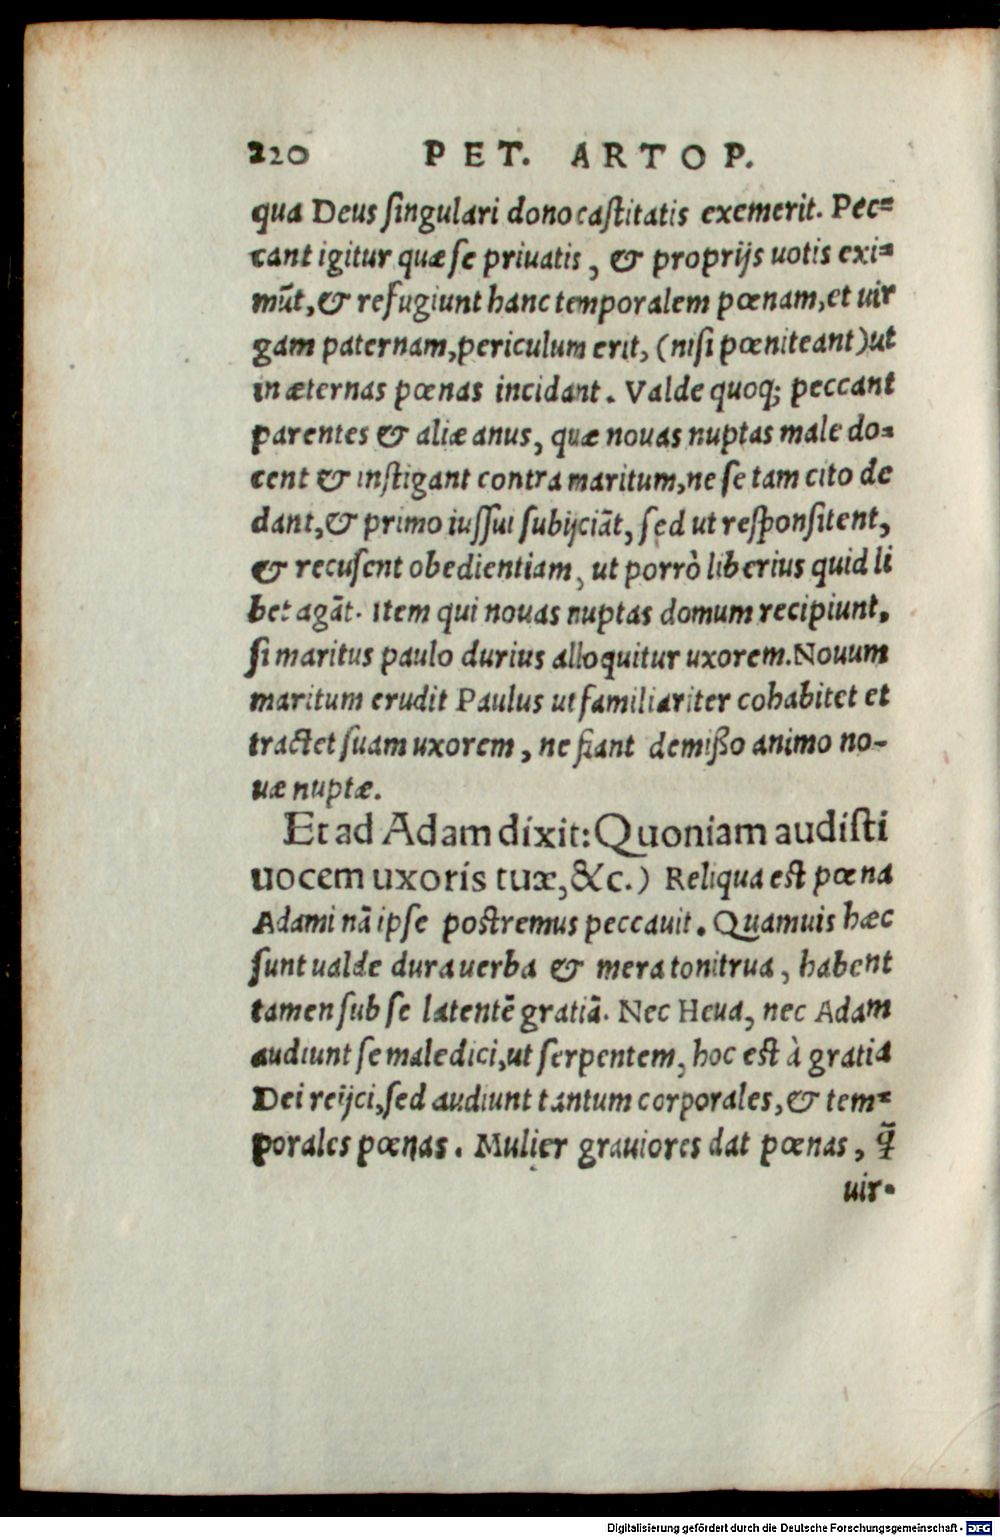 220 PET. ARTOP.
qua Deus ſingulari dono caſtitatis exemerit. Pec⸗
cant igitur quæ ſe priuatis, & proprijs uotis exi⸗
mūt, & refugiunt hanc temporalem pœnam, et uir
gam paternam, periculum erit, (niſi pœniteant) ut
in æternas pœnas incidant. Valde quoq; peccant
parentes & aliæ anus, quæ nouas nuptas male do⸗
cent & inſtigant contra maritum, ne ſe tam cito de
dant, & primo iuſſui ſubijciāt, ſed ut reſponſitent,
& recuſent obedientiam, ut porrò liberius quid li
bet agāt. Item qui nouas nuptas domum recipiunt,
ſi maritus paulo durius alloquitur uxorem. Nouum
maritum erudit Paulus ut familiariter cohabitet et
tractet ſuam uxorem, ne fiant demißo animo no-
uæ nuptæ.
Et ad Adam dixit: Quoniam audiſti
uocem uxoris tuæ, &c.) Reliqua eſt pœna
Adami nā ipſe poſtremus peccauit. Quamuis hæc
ſunt ualde dura uerba & mera tonitrua, habent
tamen ſub ſe latentē gratiā. Nec Heua, nec Adam
audiunt ſe maledici, ut ſerpentem, hoc eſt à gratia
Dei reijci, ſed audiunt tantum corporales, & tem⸗
porales pœnas. Mulier grauiores dat pœnas, q̄
uir⸗
Digitalisierung gefördert durch die Deutsche Forschungsgemeinschaft - DFG